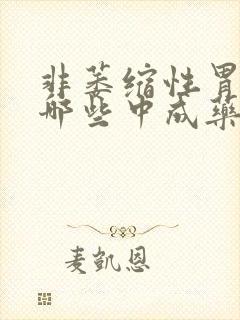 非萎缩性胃
哪些中成药
麦凯恩